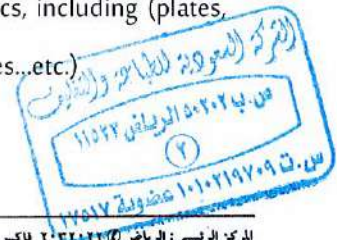 cs, including (plates,
es...etc.)
الشركة السعودية للطباعة والتغليف
ص.ب ٥٠٢٠٢ الرياض ١١٥٢٣
٢
س.ت ١٠١٠٢١٩٧٠٩ عضوية ١٧٥١٧
المركز الرئيسي : الرياض